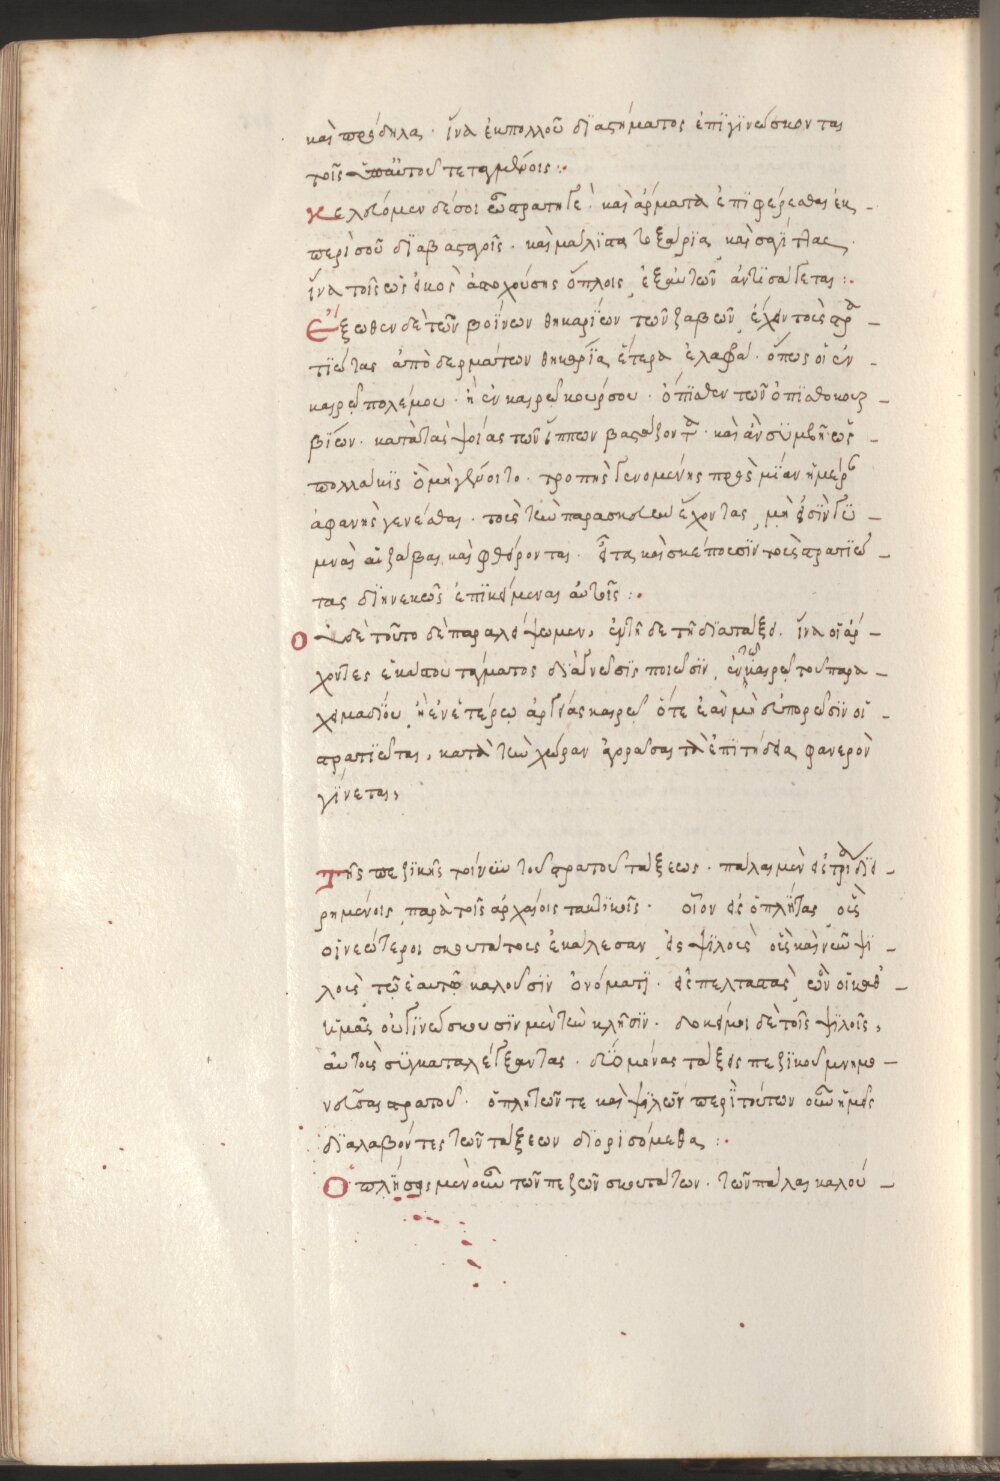 καὶ πρόδηλα· ἵνα ἐκ πολλοῦ διαστήματος ἐπϊγϊνώσκονται
τοῖς ὑπ' αὐτοὺς τεταγμένοις :·
Κελεύομεν δέ σοι ὦ στρατηγὲ· καὶ ἅρματα ἐπϊφέρεσθαι ἐκ
περϊσσοῦ διαβασταγοῖς· καὶ μάλϊστα τοξάρϊα καὶ σαγίττας
ἵνα τοῖς ὡς εἰκὸς ἀποχούσης ὅπλοις, ἐξ αὐτῶν ἀντϊσάγεται :·
Ἔξωθεν δὲ τῶν βοΐνων θηκαρίων τῶν ζαβῶν, ἔχειν τοὺς στρα
τϊώτας ἀπὸ δερμάτων θηκάρϊα ἕτερα ἐλαφρά· ὅπως οἱ ἐν
καιρῷ πολέμου· ἢ ἐν καιρῷ κούρσου· ὄπϊσθεν τῶν ὀπϊσθοκουρ
βίων· κατὰ τὰς ψοίας τῶν ἵππων βαστάζονται· καὶ ἂν συμβῇ ὡς
πολλάκϊς ὃ μὴ γένοιτο· τροπῆς γενομένης πρὸς μίαν ἡμέραν
ἀφανὴς γενέσθαι· τοὺς τὴν παρασκευὴν ἔχοντας, μὴ εἰσὶν γυ
μναὶ αἱ ζάβαι καὶ φθείρονται·
τας διηνεκῶς ἐπϊκείμεναι αὐτοῖς :·
Οὐδὲ τοῦτο δὲ παραλείψωμεν, ἐν τῇδε τῇ διατάξει· ἵνα οἱ ἄρ
χοντες ἑκάστου τάγματος διάγνωσϊν ποιῶσϊν, ἐν τῷ καιρῷ τοῦ παρα
χειμαδίου, ἢ ἐν ἑτέρῳ ἀργίας καιρῷ ὅτε ἐὰν μὴ εὐπορῶσϊν οἱ
στρατϊῶται, κατὰ τὴν χώραν ἀγοράσαι τὰ ἐπϊτήδεια φανερὸν
γίνεται,
Τῆς πεζϊκῆς τοίνυν τοῦ στρατοῦ τάξεως· πάλαι μὲν εἰς τρία διῃ
ρημένης παρὰ τοῖς ἀρχαίοις τακτϊκοῖς· οἷον εἰς ὁπλίτας οὓς
οἱ νεώτεροι σκουτάτους ἐκάλεσαν εἰς ψϊλοὺς οὓς καὶ νῦν ψϊ
λοὺς τῷ ἑαυτῶν καλοῦσϊν ὀνόματϊ· εἰς πελταστὰς ὧν οἱ καθ'
ἡμᾶς οὐ γϊνώσκουσϊν μὲν τὴν κλῆσϊν· δοκεῖ μοι δὲ τοῖς ψϊλοῖς,
αὐτοὺς συγκαταλέξαντας· δύο μόνας τάξεις πεζϊκοῦ μνημο
νεῦσαι στρατοῦ· ὁπλιτῶν τε καὶ ψϊλῶν περὶ τούτων οὖν ἡμεῖς
διαλαβόντες τῶν τάξεων διορισόμεθα :·
Ὁπλίσεις μὲν οὖν τῶν πεζῶν σκουτάτων· τῶν πάλαι καλου